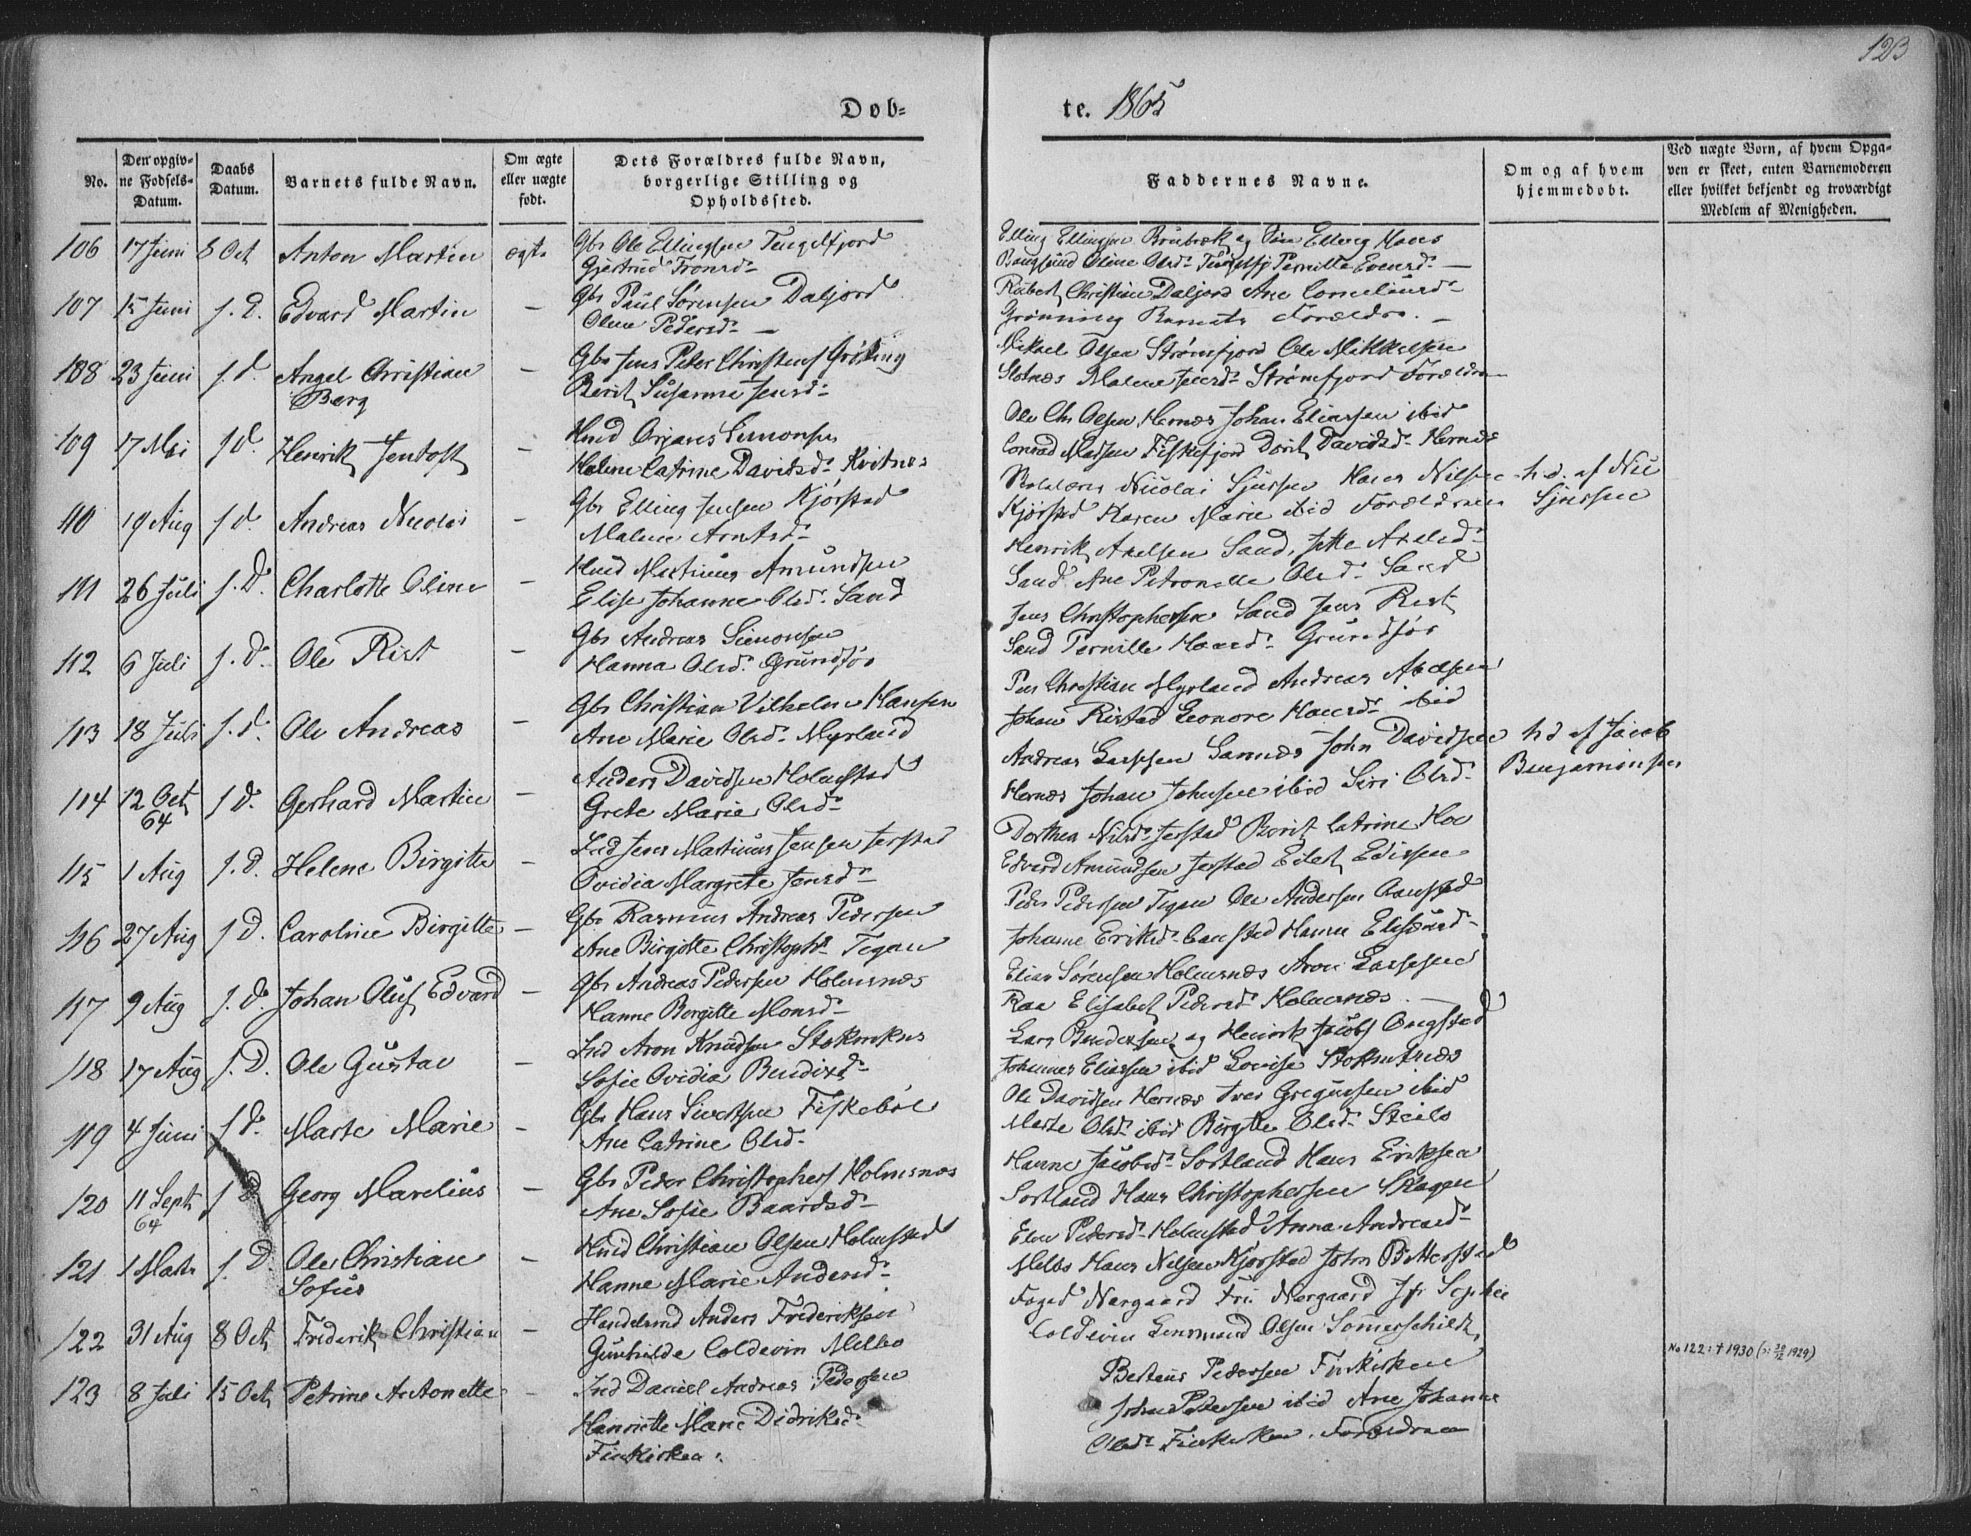 123
Døb-
te. 1865
No.
Den opgiv-
ne Fødsels-
Datum.
Daabs
Datum.
Barnets fulde Navn.
Om ægte
eller uægte
født.
Dets Forældres fulde Navn,
borgerlige Stilling og
Opholdssted.
Faddernes Navne.
Om og af hvem
hjemmedøbt.
Ved uægte Børn, af hvem Opga-
ven er skeet, enten Barnemoderen
eller hvilket bekjendt og troværdigt
Medlem af Menigheden.
106 17 Juni 8 Oct Anton Martin ægte Gbr Ole Ellingsen Tengelfjord
Gjertrud Tronsd.
Elling Ellingsen og Elling Hans
Oline Olsd. Pernille Evensd. —
107 15 Juni s. D. Edvard Martin — Gbr Paul Sørensen Daljord
Oline Pedersd. —
Christian Daljord Ane Corneliusd.
Grønning Barnets Forældre. —
108 23 Juni s. d. Angel Christian — Gbr Jens Peter Christens Grøning
Berg
Berit Susanna Jensd.
Mikael Olsen Strømfjord Ole Mikkelsen
Slotnæs Malene Jensd. Strømfjord Forældrene
109 17 Mai s d. Henrik Jentoft — Hmd Simonsen
Helene Catrine Davidsd. Kvitnes
Ole Chr Olsen Hernæs Johan Eliassen ibid
Conrad Madsen Fiskefjord Dorit Davidsd. Hernæs
110 19 Aug s d. Andreas Nicolai — Gbr Elling Jensen Kjørstad
Malene Arntsd.
Nicolai Sjursen Hans Nilsen
Kjørstad Karen Marie ibid Forældrene
h. d. af Nic
Sjursen
111 26 Juli s. D. Charlotte Oline — Hmd Martinus Amundsen
Elise Johanne Olsd. Sand
Henrik Axelsen Sand, Jette Axelsd.
Sand Ane Petronelle Olsd. Sand
112 6 Juli s. d. Ole Rist — Gbr Andreas Simonsen
Hanna Olsd. Grundfør
Jens Christophersen Sand Jens Rist
Sand Pernille Hansd. Grundfør
113 18 Juli s. d. Ole Andreas — Gbr Christian Vilhelm Hansen
Ane Marie Olsd. Myrland
Christian Myrland Andreas Axelsen
Johan Ristad Leonore Hansd. ibid
114 12 Oct s d. Gerhard Martin — Anders Davidsen Holmstad
64
Grete Marie Olsd.
Andreas Larssen Sannæs John Davidsen
Hernæs Johan Johnsen ibid Siri Olsd.
h d af Jacob
Benjaminsen
115 1 Aug s. d. Helene Birgitte — Ind Jens Martinus Jensen Jerstad
Ovidia Margrete Jensd.
Dorthea Nilsd. Jerstad Berit Catrine Hoe
Edvard Amundsen Jerstad Eilert Edissen
116 27 Aug s D. Caroline Birgitte — Gbr Rasmus Andreas Pedersen
Ane Birgitte Christophd. Tegen
Peder Pedersen Tegen Ole Andersen Aanstad
Johanne Eriksd. Aanstad Hanne Elisæusd.
117 9 Aug s. d. Johan Oluf Edvard — Gbr Andreas Pedersen Holmsnæs
Hanne Birgitte Monsd.
Elias Sørensen Holmsnæs Aron Larssen
Raa Elisabet Pedersd. Holmsnæs. —
118 17 Aug s. D. Ole Gustav — Ind Aron Knudsen Stokmknes
Sofie Ovidia Bendixd.
Lars Bendixsen og Henrik Jacobs Ongstad
Johannes Eliassen ibid Lovise Stokmknæs
119 4 Juni s d. Marte Marie — Gbr Hans Sivertsen Fiskebøl
Ane Catrine Olsd.
Ole Davidsen Hernæs Iver Gregusen ibid
Marte Olsd. ibid Birgitte Olsd. Steilo
120 11 Sept s D Georg Marelius — Gbr Peder Christophers Holmsnæs
64
Ane Sofie Baardsd.
Hanne Jacobsd. Sortland Hans Eriksen
Sortland Hans Christophersen Skagen
121 1 Mats s. D. Ole Christian — Hmd Christian Olsen Holmstad
Sofus
Hanne Marie Andersd.
Elen Pedersd. Holmstad Anna Andreasd.
Melbo Hans Nilsen Kjørstad John Bitterstad
122 31 Aug 8 Oct Friderik Christian — Handelsmd Anders Frederiksen
Gunhilde Coldevin Melbo
Foged Nørgaard Fru Nørgaard Jfr Sophie
Coldevin Lensmand Olsen Sommerschildt
No 122: † 1930
123 8 Juli 15 Oct Petrine Antonette — Ind Daniel Andreas Pedersen
Henriette Marie Didriksd.
Finkirken.
Berteus Pedersen Finkirken
John Pedersen ibid Ane Johanne
Olsd. Finkirken. Forældrene